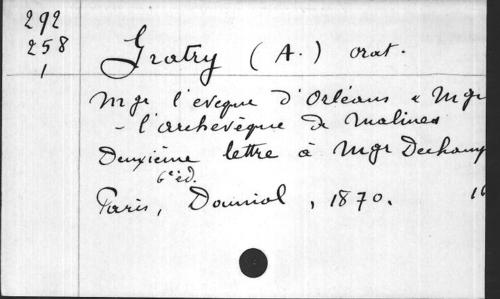 292
258
1
Gratry (A.) orat.
Mgr l'eveque d'Orléans & Mgr
- l'archevêque de Malines
Deuxième lettre à Mgr Dechamp
6e éd.
Paris, Douniol, 1870. 16